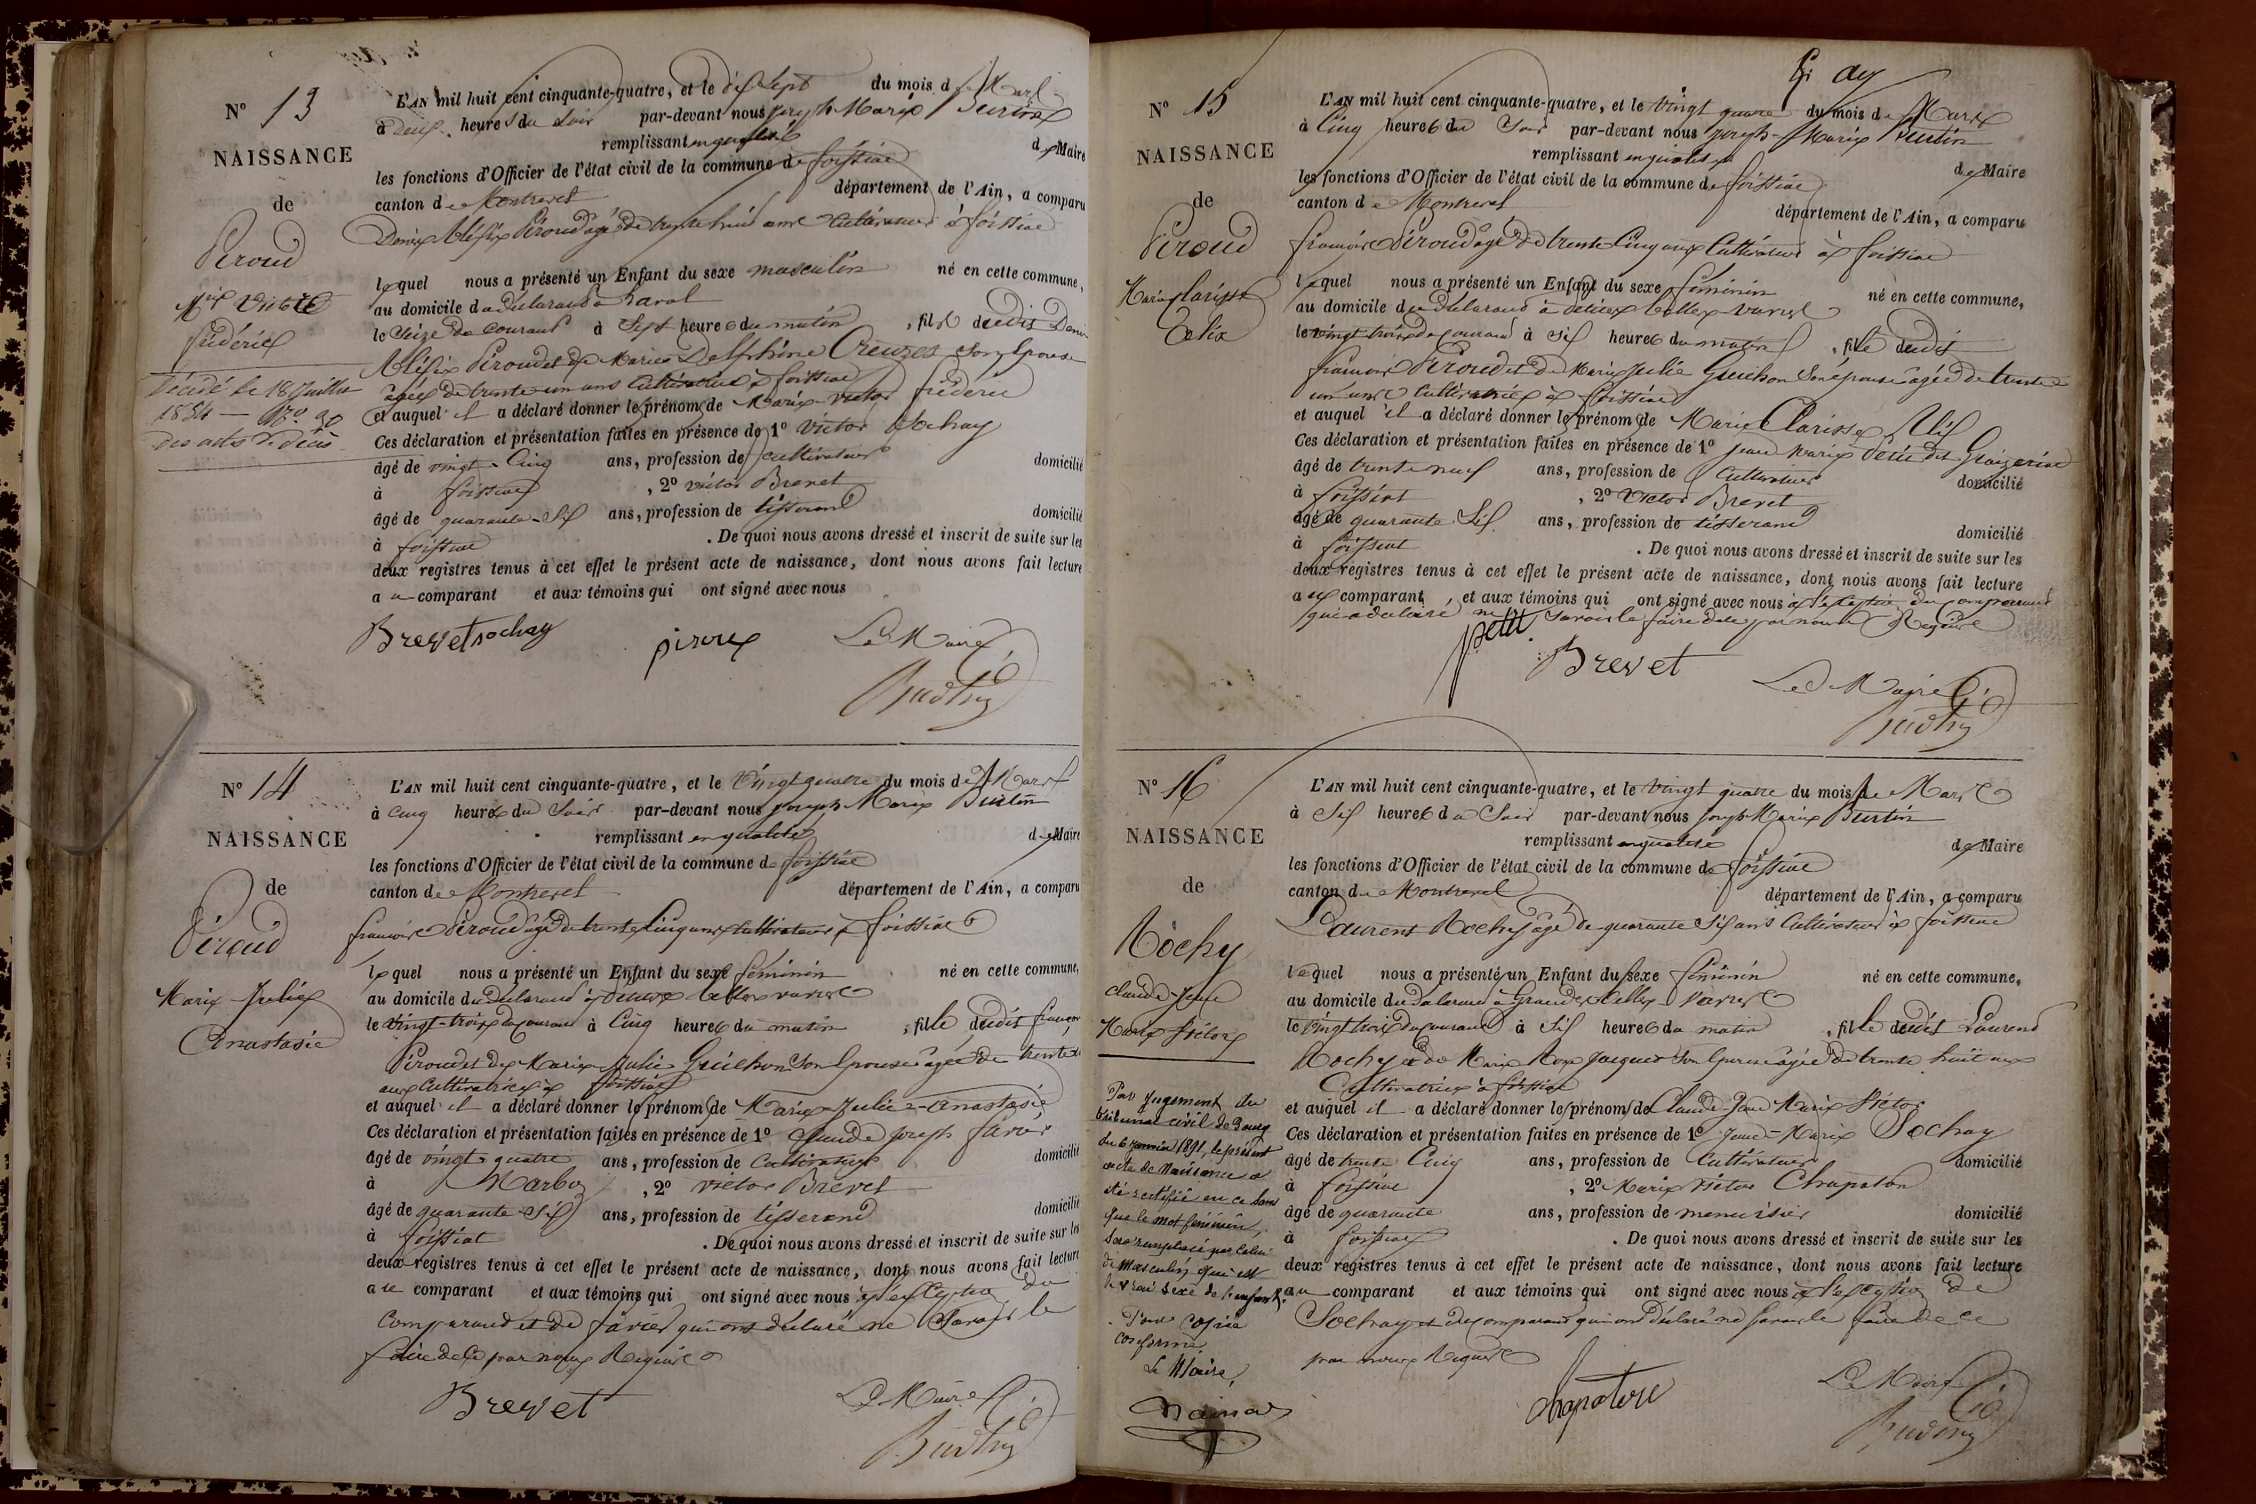 N° 13
NAISSANCE
de
Péroud
Mie Victor
Fréderic
Décédé le 18 Juillet
1854 — N° 20
des actes de décès
L'AN mil huit cent cinquante-quatre, et le dix Sept du mois de Mars
à deux heures du Soir par-devant nous Joseph Marie Burtin
remplissant en qualité de Maire
les fonctions d'Officier de l'état civil de la commune de foissiat
canton de Montrevel département de l'Ain, a comparu
Denis Alexis Péroud agé de trente huit ans Cultivateur à foissiat
lequel nous a présenté un Enfant du sexe masculin né en cette commune,
au domicile du déclarant à
le Seize du Courant à Sept heures du matin, fils dudit Denis
Alexis Péroud et de Marie Delphine Creuzet Son épouse
agée de trente un ans Cultivatrice à foissiat
et auquel il a déclaré donner les prénoms de Marie Victor fréderic
Ces déclaration et présentation faites en présence de 1° Victor Sochay
âgé de vingt-Cinq ans, profession de Cultivateur domicilié
à foissiat, 2° Victor Brevet
âgé de quarante-Six ans, profession de tisserand domicilié
à foissiat. De quoi nous avons dressé et inscrit de suite sur les
deux registres tenus à cet effet le présent acte de naissance, dont nous avons fait lecture
au comparant et aux témoins qui ont signé avec nous
Brevet Sochay Le Maire
Burtin
N° 14
NAISSANCE
de
Péroud
Marie Julie
Anastasie
L'AN mil huit cent cinquante-quatre, et le Vingt quatre du mois de Mars
à cinq heures du Soir par-devant nous Joseph Marie Burtin
remplissant en qualité de Maire
les fonctions d'Officier de l'état civil de la commune de foissiat
canton de Montrevel département de l'Ain, a comparu
françois Péroud agé de trente Cinq ans Cultivateur à foissiat
lequel nous a présenté un Enfant du sexe féminin né en cette commune,
au domicile du déclarant à
le Vingt-trois du Courant à Cinq heures du matin, fille dudit françois
Péroud et de Marie Julie Guichon Son épouse agée de trente un
ans Cultivatrice à foissiat
et auquel il a déclaré donner les prénoms de Marie-Julie-Anastasie
Ces déclaration et présentation faites en présence de 1° Claude Joseph favier
âgé de vingt quatre ans, profession de Cultivateur domicilié
à Marboz, 2° Victor Brevet
âgé de quarante-Six ans, profession de tisserand domicilié
à foissiat. De quoi nous avons dressé et inscrit de suite sur les
deux registres tenus à cet effet le présent acte de naissance, dont nous avons fait lecture
au comparant et aux témoins qui ont signé avec nous à l'exception du
Comparant et de favier qui ont déclaré ne Savoir le
faire de ce par nous Requis
Brevet Le Maire
Burtin
N° 15
NAISSANCE
de
Péroud
Marie Clarisse
Alix
L'AN mil huit cent cinquante-quatre, et le Vingt quatre du mois de Mars
à Cinq heures du Soir par-devant nous Joseph-Marie Burtin
remplissant en qualité de Maire
les fonctions d'Officier de l'état civil de la commune de foissiat
canton de Montrevel département de l'Ain, a comparu
françois Péroud agé de trente Cinq ans Cultivateur à foissiat
lequel nous a présenté un Enfant du sexe féminin né en cette commune,
au domicile du déclarant à
le vingt trois du Courant à Six heures du matin, fille dudit
françois Péroud et de Marie Julie Guichon Son épouse agée de trente
un ans Cultivatrice à foissiat
et auquel il a déclaré donner les prénoms de Marie Clarisse Alix
Ces déclaration et présentation faites en présence de 1° Jean Marie Petit dit
âgé de trente neuf ans, profession de Cultivateur domicilié
à foissiat, 2° Victor Brevet
âgé de quarante Six ans, profession de tisserand domicilié
à foissiat. De quoi nous avons dressé et inscrit de suite sur les
deux registres tenus à cet effet le présent acte de naissance, dont nous avons fait lecture
au comparant, et aux témoins qui ont signé avec nous à l'exception du Comparant
qui a déclaré ne Savoir le faire de ce par nous Requis
Petit
Brevet
Le Maire
Burtin
N° 16
NAISSANCE
de
Rochy
Claude-Jean
Marie Victor
Par jugement du
tribunal civil de Bourg
du 6 janvier 1891, le présent
acte de Naissance a
été rectifié en ce sens
que le mot féminin,
sera remplacé par celui
de Masculin qui est
le vrai sexe de l'enfant.
Pour copie
conforme
Le Maire,
L'AN mil huit cent cinquante-quatre, et le Vingt quatre du mois de Mars
à Six heures du Soir par-devant nous Joseph Marie Burtin
remplissant en qualité de Maire
les fonctions d'Officier de l'état civil de la commune de foissiat
canton de Montrevel département de l'Ain, a comparu
Laurent Rochy agé de quarante Six ans Cultivateur à foissiat
lequel nous a présenté un Enfant du sexe féminin né en cette commune,
au domicile du déclarant à
le Vingt trois du Courant à Six heures du matin, fille dudit Laurent
Rochy et de Marie Rose Jacquet Son épouse agée de trente huit ans
Cultivatrice à foissiat
et auquel il a déclaré donner les prénoms de Claude Jean Marie Victor
Ces déclaration et présentation faites en présence de 1° Jean-Marie Sochay
âgé de trente Cinq ans, profession de Cultivateur domicilié
à foissiat, 2° Marie Victor Chapaton
âgé de quarante ans, profession de menuisier domicilié
à foissiat. De quoi nous avons dressé et inscrit de suite sur les
deux registres tenus à cet effet le présent acte de naissance, dont nous avons fait lecture
au comparant et aux témoins qui ont signé avec nous à l'exception de
Sochay et du Comparant qui ont déclaré ne Savoir le faire de ce
par nous Requis
Le Maire
Burtin